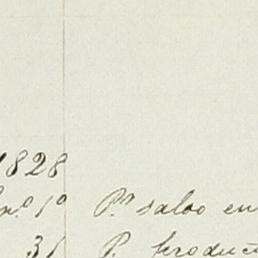 1828
En.º 1º P.r saldo en
31 P. product